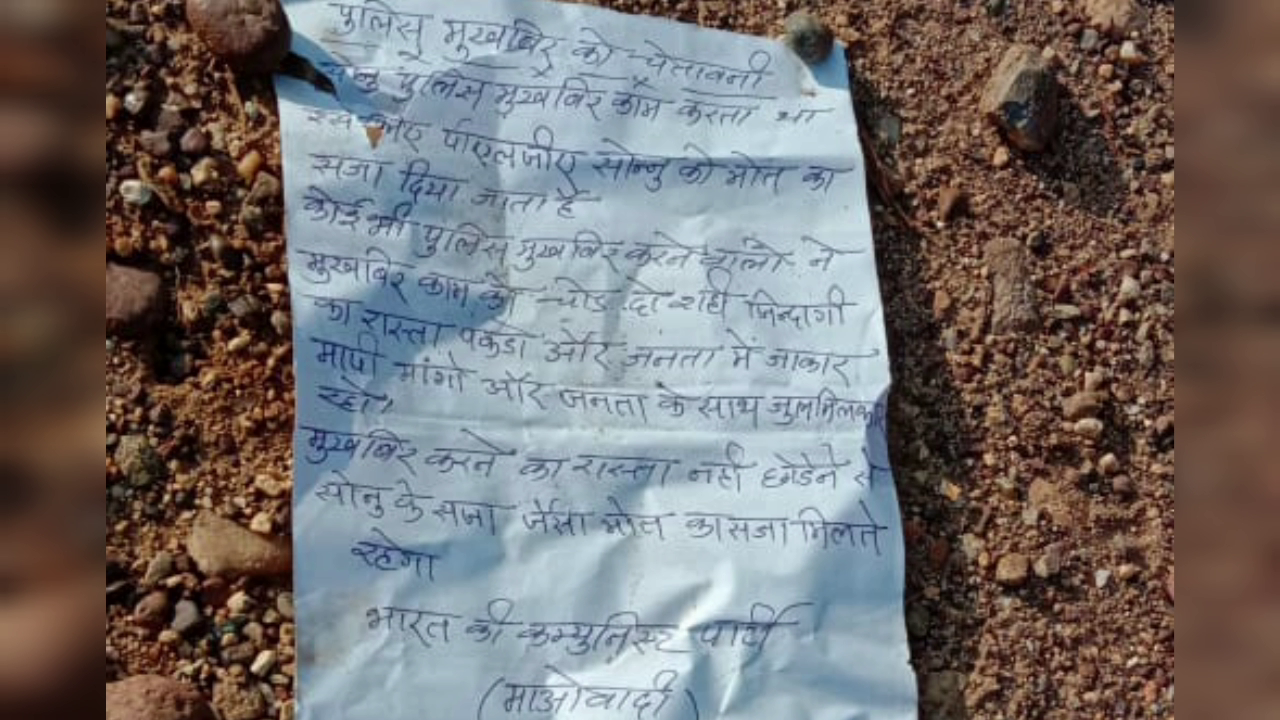 पुलिस मूखबिर को चेतावनी
सोनु पुलिस मुखबिर काम करता था
इस लिए पीएलजीए सोन्नु को मोत का
सजा दिया जाता है
कोई भी पुलिस मुखबिर करने वालो ने
मुखबिर काम को चोड दो शही जिन्दागी
का रास्ता पकडो और जनता में जाकार
मापी मांगो और जनता के साथ जुलमिलकर
रहो,
मुखबिर करने का रास्ता नही छोडेने से
सोनु के सजा जैसा मोत का सजा मिलते
रहेगा
भारत की कम्युनिस्ट पार्टी
(माओवादी)